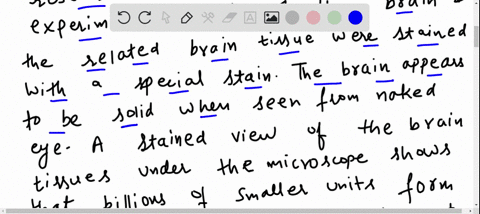 brain
experim
the related brain tissue were stained
with a special stain. The brain appears
to be solid when seen from naked
eye. A stained view of the brain
tissues under the microscope shows
that billions of smaller units form